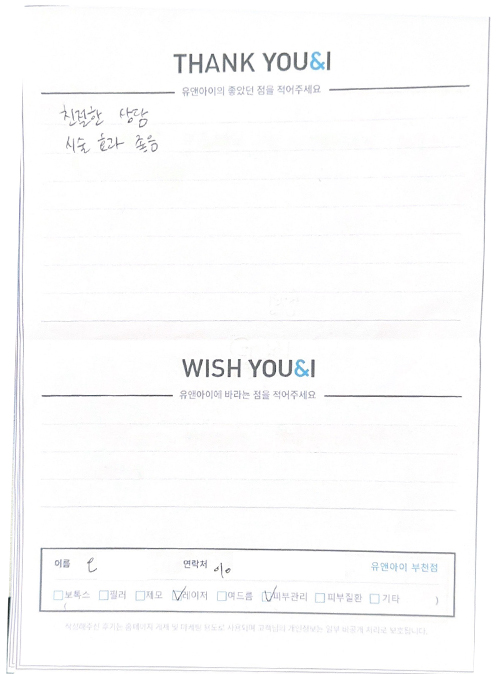 THANK YOU&I
유앤아이의 좋았던 점을 적어주세요
친절한 상담
시술 효과 좋음
WISH YOU&I
유앤아이에 바라는 점을 적어주세요
이름 연락처 010 유앤아이 부천점
보톡스 필러 제모 레이저 여드름 피부관리 피부질환 기타
( )
작성해주신 후기는 홈페이지 게재 및 마케팅 용도로 사용되며 고객님의 개인정보는 일부 비공개 처리로 보호됩니다.